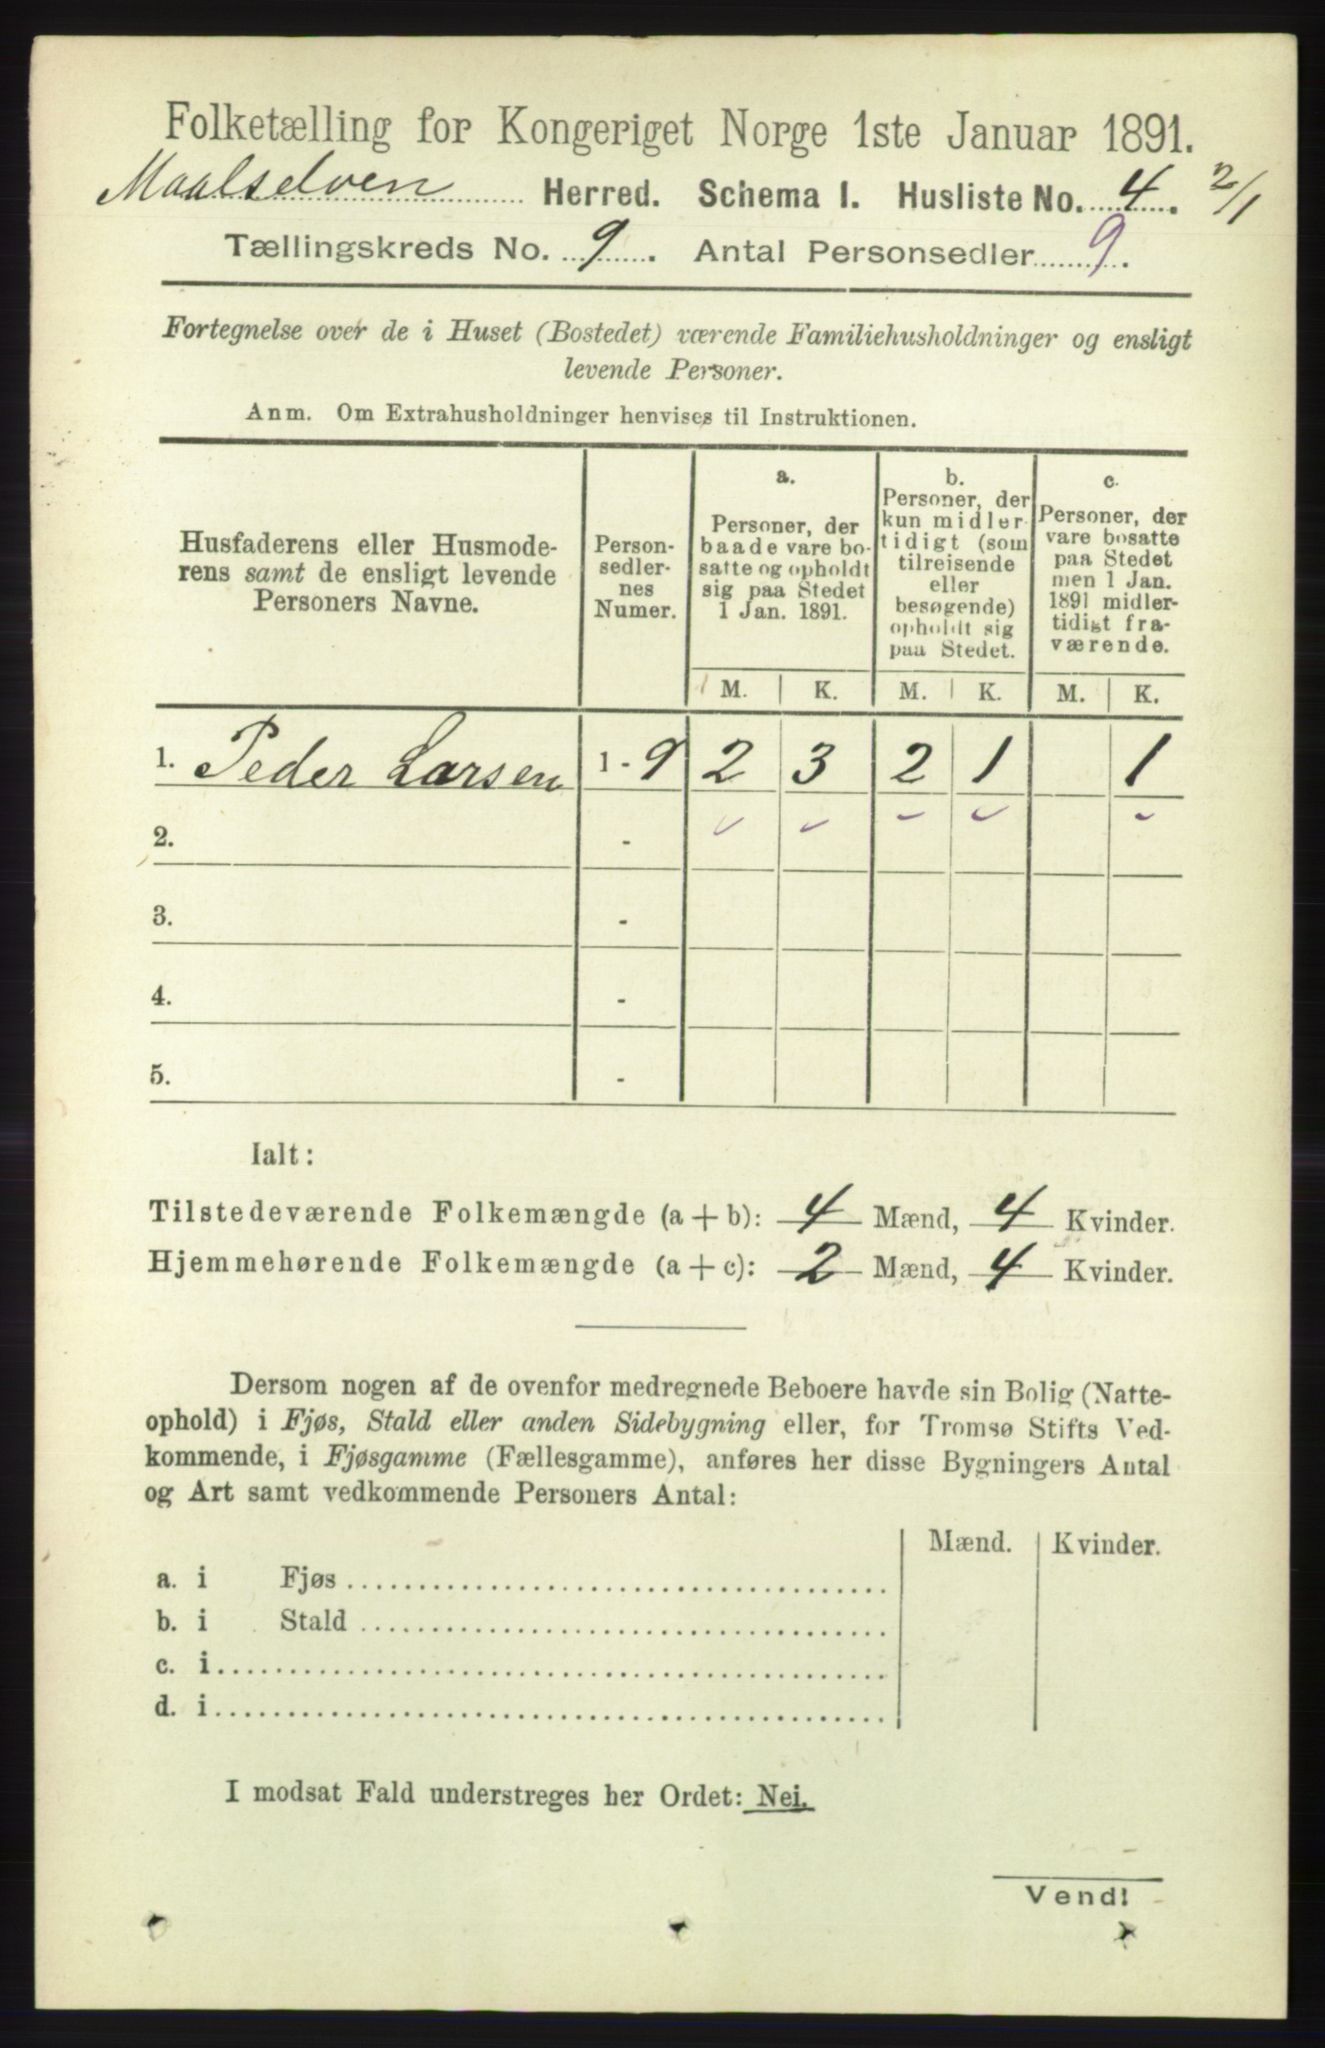 Folketælling for Kongeriget Norge 1ste Januar 1891.
Maalselven Herred. Schema I. Husliste No. 4. 2/1
Tællingskreds No. 9. Antal Personsedler 9.
Fortegnelse over de i Huset (Bostedet) værende Familiehusholdninger og ensligt
levende Personer.
Anm. Om Extrahusholdninger henvises til Instruktionen.
Husfaderens eller Husmode-
rens samt de ensligt levende
Personers Navne.
Person-
sedler-
nes
Numer.
a.
Personer, der
baade vare bo-
satte og opholdt
sig paa Stedet
1 Jan. 1891.
b.
Personer, der
kun midler-
tidigt (som
tilreisende
eller
besøgende)
opholdt sig
paa Stedet.
c.
Personer, der
vare bosatte
paa Stedet
men 1 Jan.
1891 midler-
tidigt fra-
værende.
M. K. M. K. M. K.
1. Peder Larsen 1 - 9 2 3 2 1 1
2. -
3. -
4. -
5. -
Ialt:
Tilstedeværende Folkemængde (a + b): 4 Mænd, 4 Kvinder.
Hjemmehørende Folkemængde (a + c): 2 Mænd, 4 Kvinder.
Dersom nogen af de ovenfor medregnede Beboere havde sin Bolig (Natte-
ophold) i Fjøs, Stald eller anden Sidebygning eller, for Tromsø Stifts Ved-
kommende, i Fjøsgamme (Fællesgamme), anføres her disse Bygningers Antal
og Art samt vedkommende Personers Antal:
Mænd. Kvinder.
a. i Fjøs
b. i Stald
c. i
d. i
I modsat Fald understreges her Ordet: Nei.
Vend!